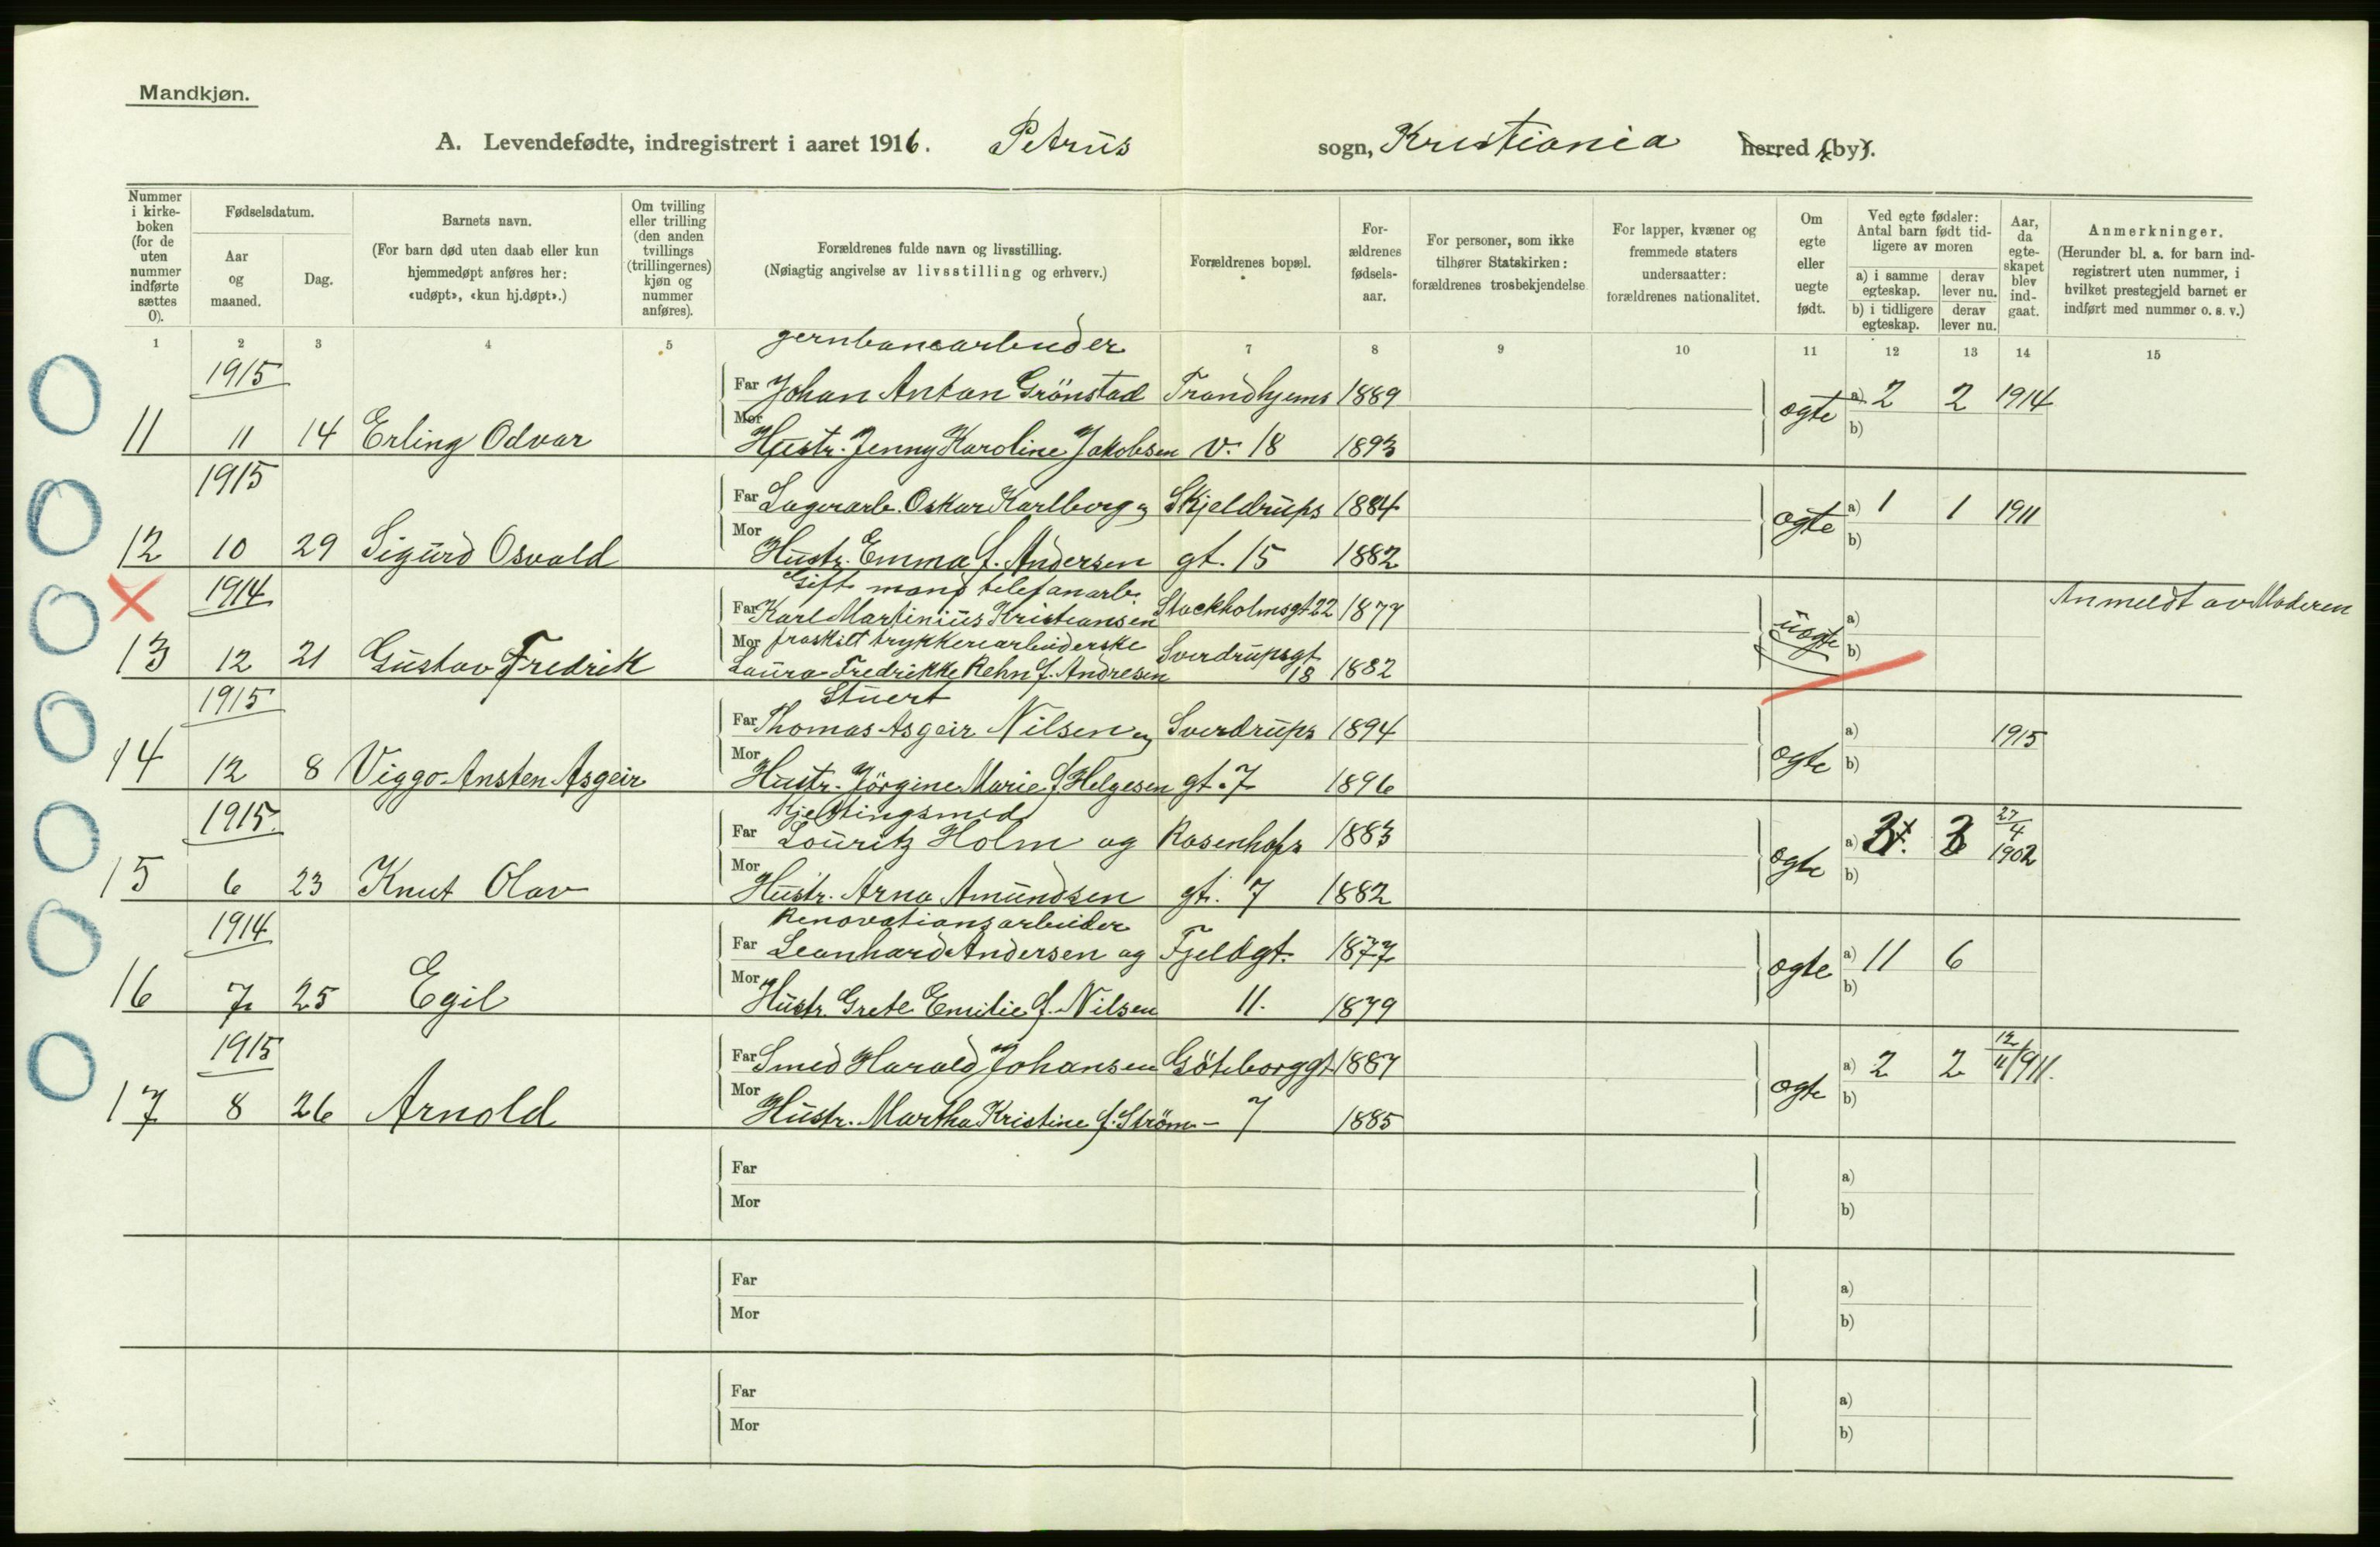 Mandkjøn.
A. Levendefødte, indregistrert i aaret 1916. Petrus sogn, Kristiania herred (by).
Nummer i kirkeboken (for de uten nummer indførte sættes 0).
Fødselsdatum.
Aar og maaned.
Dag.
Barnets navn.
(For barn død uten daab eller kun hjemmedøpt anføres her: «udøpt», «kun hj.døpt».)
Om tvilling eller trilling (den anden tvillings (trillingernes) kjøn og nummer anføres).
Forældrenes fulde navn og livsstilling.
(Nøiagtig angivelse av livsstilling og erhverv.)
Forældrenes bopæl.
Forældrenes fødselsaar.
For personer, som ikke tilhører Statskirken: forældrenes trosbekjendelse
For lapper, kvæner og fremmede staters undersaatter: forældrenes nationalitet.
Om egte eller uegte født.
Ved egte fødsler: Antal barn født tidligere av moren
a) i samme egteskap. derav lever nu.
b) i tidligere egteskap. derav lever nu.
Aar, da egteskapet blev indgaat.
Anmerkninger.
(Herunder bl. a. for barn indregistrert uten nummer, i hvilket prestegjeld barnet er indført med nummer o. s. v.)
1 2 3 4 5 7 8 9 10 11 12 13 14 15
jernbanearbeider
1915
Far Johan Anton Grönstad Trondhjems 1889
11 11 14 Erling Odvar
Mor Hustr. Jenny Karoline Jakobsen v. 18 1893
ægte a) 2 2 1914
b)
1915
Far Lagerarb. Oskar Karlberg og Skjeldrups 1884
12 10 29 Sigurd Osvald
Mor Hustr. Emma f. Andersen gt. 15 1882
ægte a) 1 1 1911
b)
1914
Gift mand telefonarb.
Far Karl Martinius Kristiansen Stockholmsgt 22 1877
13 12 21 Gustav Fredrik
Mor fraskilt trykkeriarbeiderske Sverdrupsgt
Laura Fredrikke Rehn f. Andresen 18 1882
uægte a)
b)
Anmeldt av Moderen
1915
Stuert
Far Thomas Asgeir Nilsen og Sverdrups 1894
14 12 8 Viggo Ansten Asgeir
Mor Hustr. Jörgine Marie f. Helgesen gt. 7 1896
ægte a) 1915
b)
1915
Kjettingsmed
Far Louritz Holm og Rosenhofs 1883
15 6 23 Knut Olav
Mor Hustr. Arna Amundsen gt. 7 1882
ægte a) 3 3 27/4 1902
b)
1914
Renovationsarbeider
Far Leonhard Andersen og Fjeldgt. 1877
16 7 25 Egil
Mor Hustr. Grete Emilie f. Nilsen 11. 1879
ægte a) 11 6
b)
1915
Far Smed Harald Johansen Göteborggt 1887
17 8 26 Arnold
Mor Hustr. Martha Kristine f. Ström - 7 1885
ægte a) 2 2 12/11 1911.
b)
Far
Mor
a)
b)
Far
Mor
a)
b)
Far
Mor
a)
b)